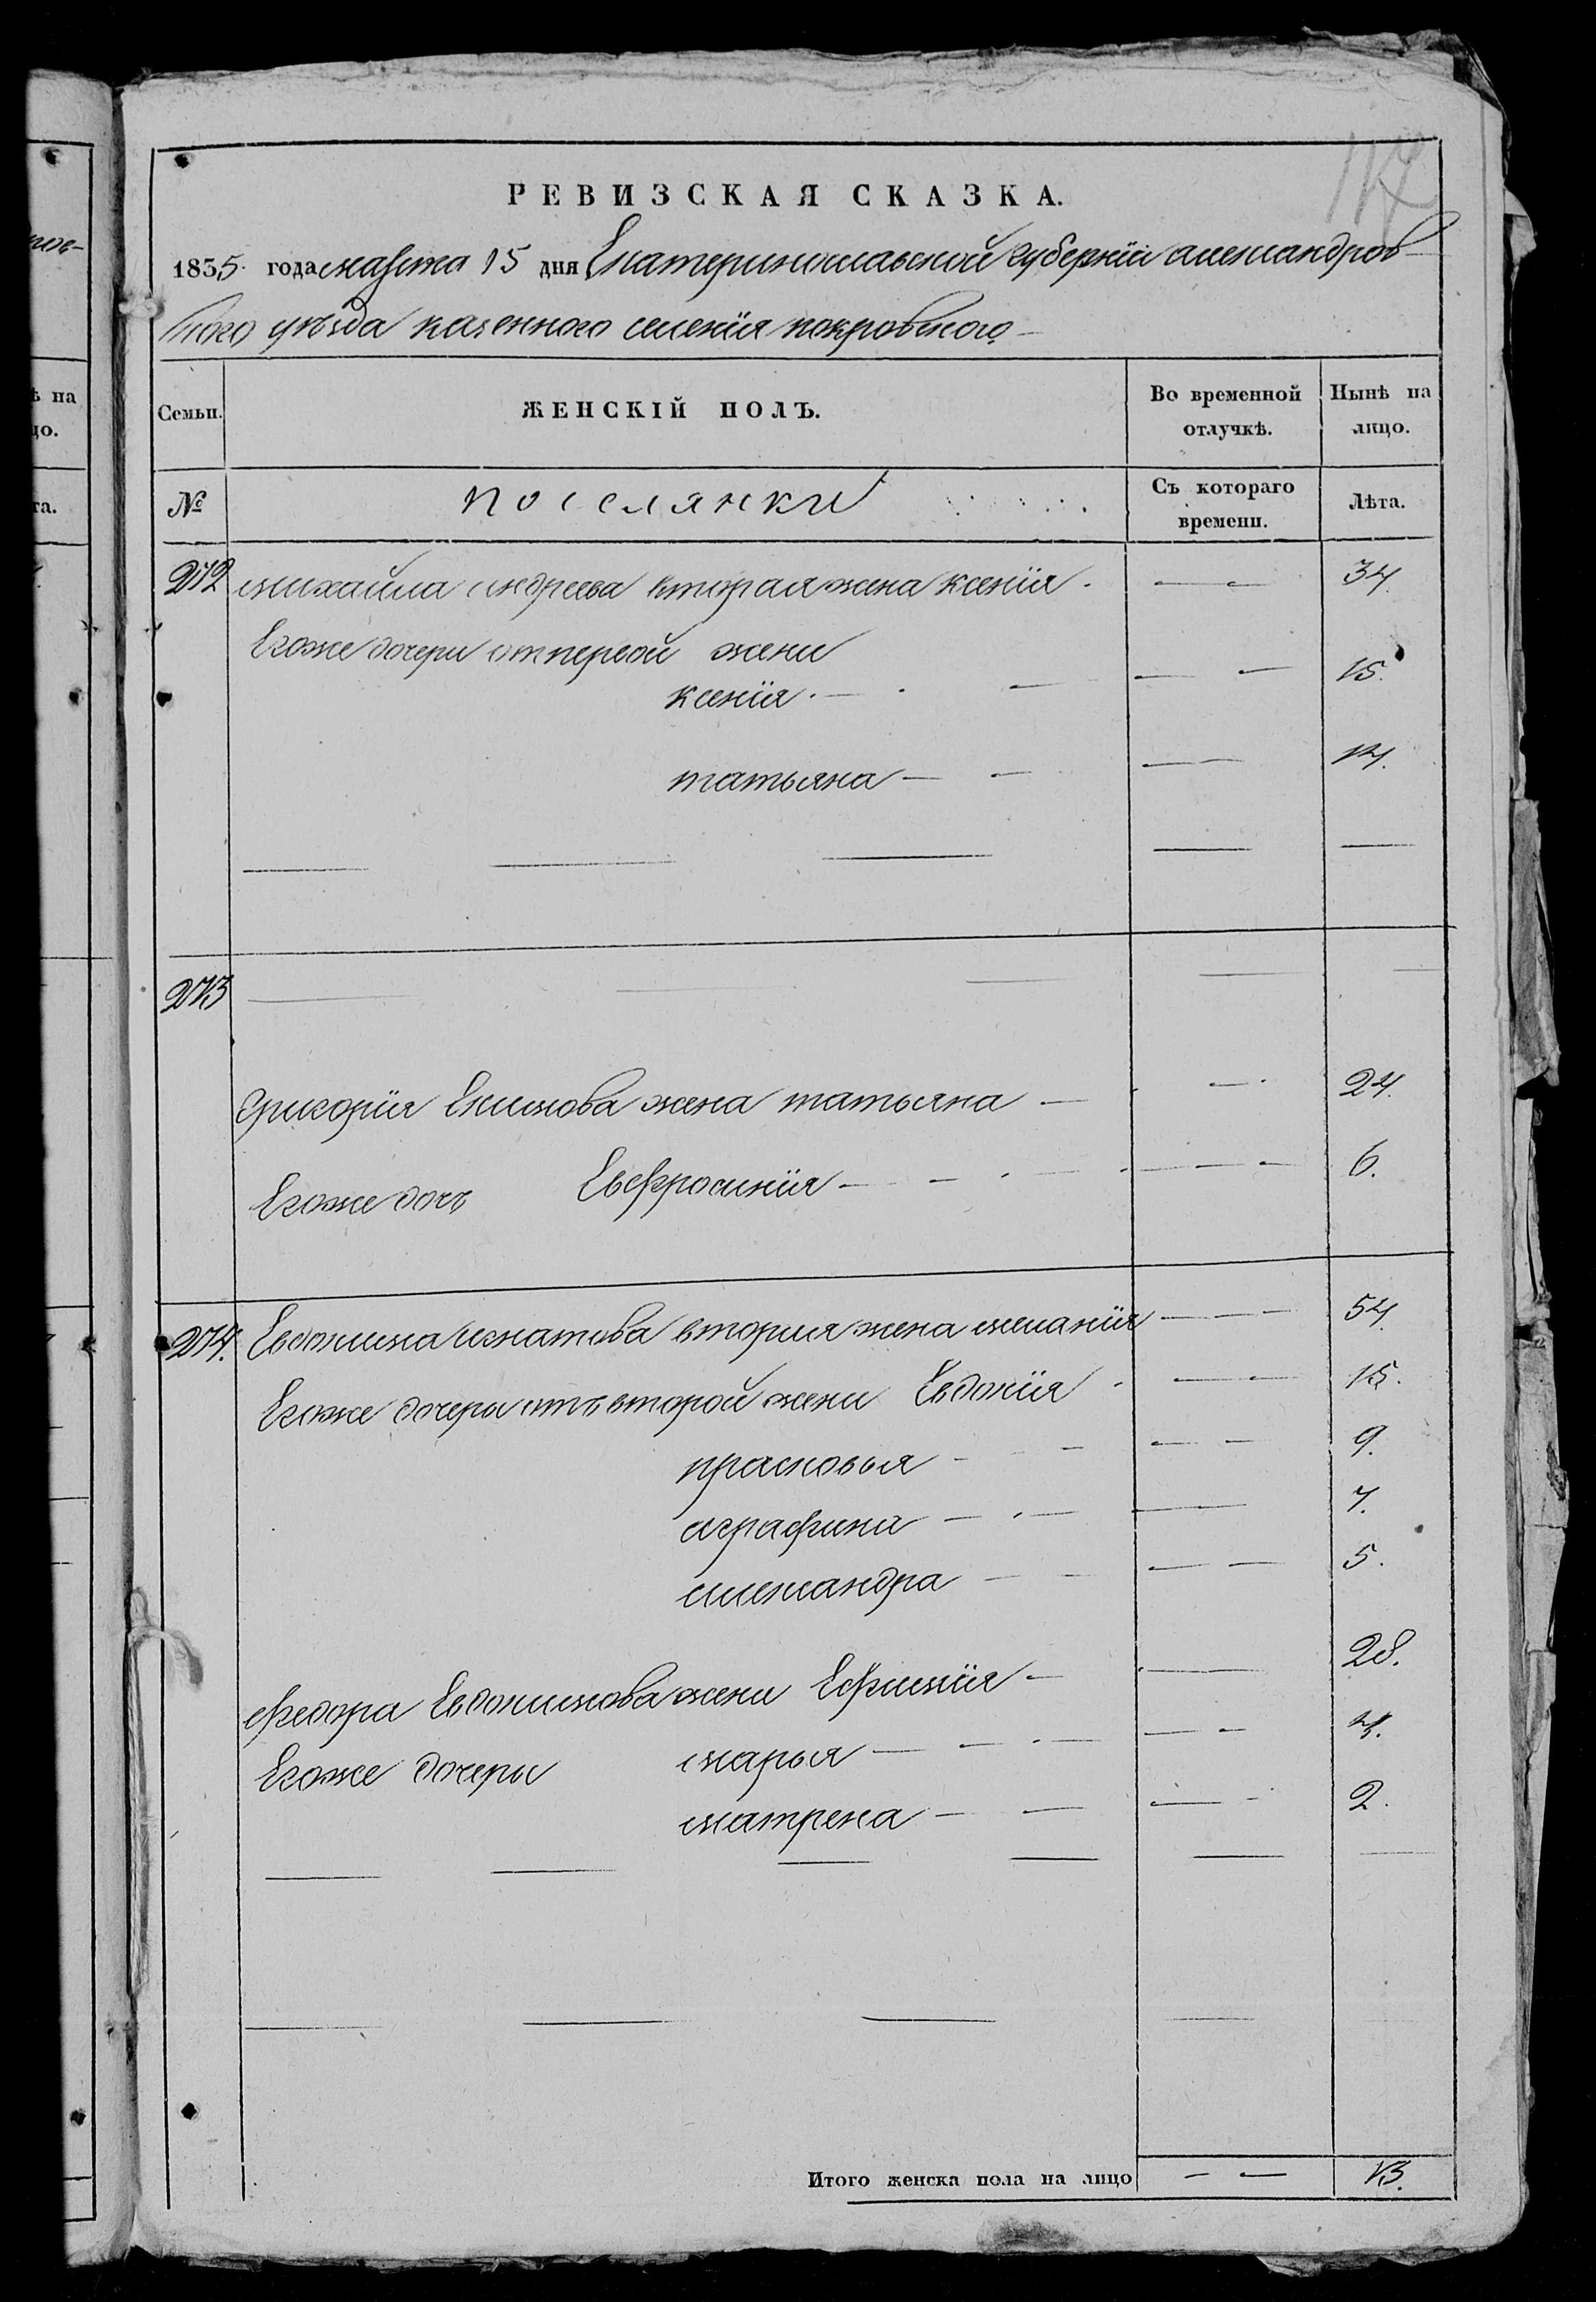 РЕВИЗСКАЯ СКАЗКА.
1835 года марта 15 дня Екатеринославской губернїи александров-
ского уѣзда казенного селенїя покровского
Семьи. ЖЕНСКІЙ ПОЛЪ. Во временной отлучкѣ. Нынѣ на лицо.
№ поселянки Съ котораго времени. Лѣта.
272 михайла андреева вторая жена ксенїя 34.
Егоже дочери от первой жени
ксенїя 15.
татьяна 14.
273
григорїя Екимова жена татьяна 24.
Егоже дочь Евфросинїя 6.
274. Евдокима игнатова вторая жена меланїя 54.
Егоже дочеры отъ второй жени Евдокїя 15.
прасковья 9.
аграфина 7.
александра 5.
федора Евдокимова жени Ефимїя 28.
Егоже дочеры марья 4.
матрена 2.
Итого женска пола на лицо 13.
ѣ на
цо.
та.